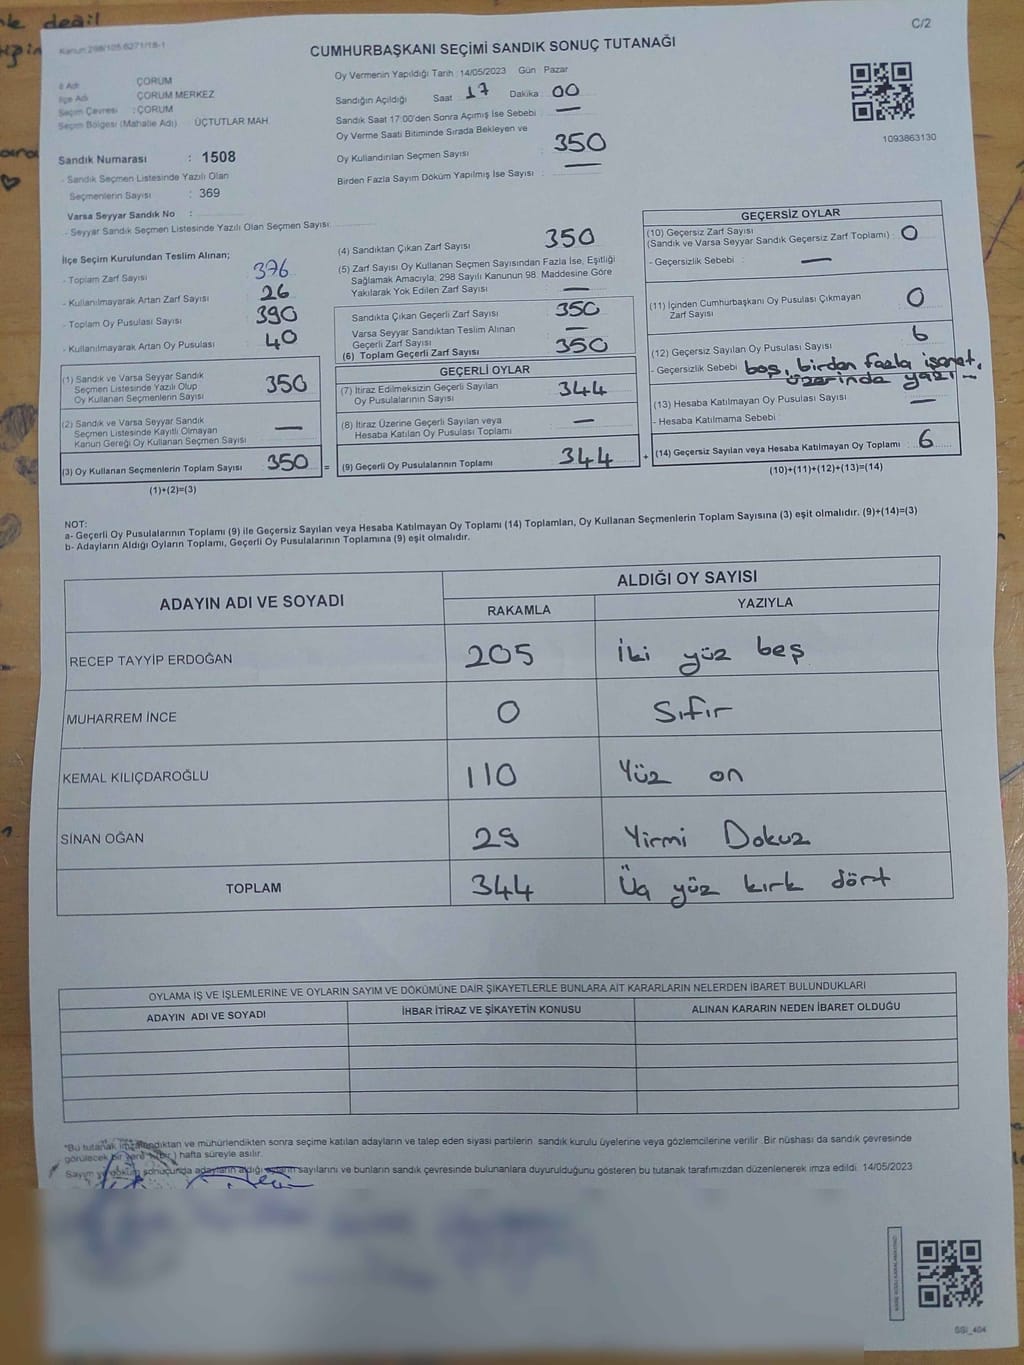 C/2
Kanun 298/105.6271/18-1
CUMHURBAŞKANI SEÇİMİ SANDIK SONUÇ TUTANAĞI
İl Adı ÇORUM
İlçe Adı ÇORUM MERKEZ
Seçim Çevresi : ÇORUM
Seçim Bölgesi (Mahalle Adı) ÜÇTUTLAR MAH.
Sandık Numarası : 1508
- Sandık Seçmen Listesinde Yazılı Olan
Seçmenlerin Sayısı : 369
Varsa Seyyar Sandık No :
- Seyyar Sandık Seçmen Listesinde Yazılı Olan Seçmen Sayısı:
Oy Vermenin Yapıldığı Tarih : 14/05/2023 Gün Pazar
Sandığın Açıldığı Saat 17 Dakika 00
Sandık Saat 17:00'den Sonra Açımış İse Sebebi —
Oy Verme Saati Bitiminde Sırada Bekleyen ve
Oy Kullandırılan Seçmen Sayısı : 350
Birden Fazla Sayım Döküm Yapılmış İse Sayısı : —
1093863130
İlçe Seçim Kurulundan Teslim Alınan;
- Toplam Zarf Sayısı 376
- Kullanılmayarak Artan Zarf Sayısı 26
- Toplam Oy Pusulası Sayısı 390
- Kullanılmayarak Artan Oy Pusulası 40
(1) Sandık ve Varsa Seyyar Sandık
Seçmen Listesinde Yazılı Olup
Oy Kullanan Seçmenlerin Sayısı 350
(2) Varsa Sandık ve Seyyar Sandık
Seçmen Listesinde Kayıtlı Olmayan
Kanun Gereği Oy Kullanan Seçmen Sayısı —
(3) Oy Kullanan Seçmenlerin Toplam Sayısı 350 =
(1)+(2)=(3)
(4) Sandıktan Çıkan Zarf Sayısı 350
(5) Zarf Sayısı Oy Kullanan Seçmen Sayısından Fazla İse, Eşitliği
Sağlamak Amacıyla; 298 Sayılı Kanunun 98. Maddesine Göre
Yakılarak Yok Edilen Zarf Sayısı —
Sandıkta Çıkan Geçerli Zarf Sayısı 350
Varsa Seyyar Sandıktan Teslim Alınan
Geçerli Zarf Sayısı —
(6) Toplam Geçerli Zarf Sayısı 350
GEÇERLİ OYLAR
(7) İtiraz Edilmeksizin Geçerli Sayılan
Oy Pusulalarının Sayısı 344
(8) İtiraz Üzerine Geçerli Sayılan veya
Hesaba Katılan Oy Pusulası Toplamı —
(9) Geçerli Oy Pusulalarının Toplamı 344 +
GEÇERSİZ OYLAR
(10) Geçersiz Zarf Sayısı
(Sandık ve Varsa Seyyar Sandık Geçersiz Zarf Toplamı) : 0
- Geçersizlik Sebebi : —
(11) İçinden Cumhurbaşkanı Oy Pusulası Çıkmayan
Zarf Sayısı 0
(12) Geçersiz Sayılan Oy Pusulası Sayısı 6
- Geçersizlik Sebebi boş, birden fazla işaret,
üzerinda yazı
(13) Hesaba Katılmayan Oy Pusulası Sayısı —
- Hesaba Katılmama Sebebi
(14) Geçersiz Sayılan veya Hesaba Katılmayan Oy Toplamı : 6
(10)+(11)+(12)+(13)=(14)
NOT:
a- Geçerli Oy Pusulalarının Toplamı (9) ile Geçersiz Sayılan veya Hesaba Katılmayan Oy Toplamı (14) Toplamları, Oy Kullanan Seçmenlerin Toplam Sayısına (3) eşit olmalıdır. (9)+(14)=(3)
b- Adayların Aldığı Oyların Toplamı, Geçerli Oy Pusulalarının Toplamına (9) eşit olmalıdır.
ADAYIN ADI VE SOYADI ALDIĞI OY SAYISI
RAKAMLA YAZIYLA
RECEP TAYYİP ERDOĞAN 205 İki yüz beş
MUHARREM İNCE 0 Sıfır
KEMAL KILIÇDAROĞLU 110 Yüz on
SİNAN OĞAN 29 Yirmi Dokuz
TOPLAM 344 Üç yüz kırk dört
OYLAMA İŞ VE İŞLEMLERİNE VE OYLARIN SAYIM VE DÖKÜMÜNE DAİR ŞİKAYETLERLE BUNLARA AİT KARARLARIN NELERDEN İBARET BULUNDUKLARI
ADAYIN ADI VE SOYADI İHBAR İTİRAZ VE ŞİKAYETİN KONUSU ALINAN KARARIN NEDEN İBARET OLDUĞU
*Bu tutanak imzalandıktan ve mühürlendikten sonra seçime katılan adayların ve talep eden siyasi partilerin sandık kurulu üyelerine veya gözlemcilerine verilir. Bir nüshası da sandık çevresinde
görülecek bir yere (bir) hafta süreyle asılır.
Sayım ve döküm sonucunda adayların aldığı oyların sayılarını ve bunların sandık çevresinde bulunanlara duyurulduğunu gösteren bu tutanak tarafımızdan düzenlenerek imza edildi. 14/05/2023